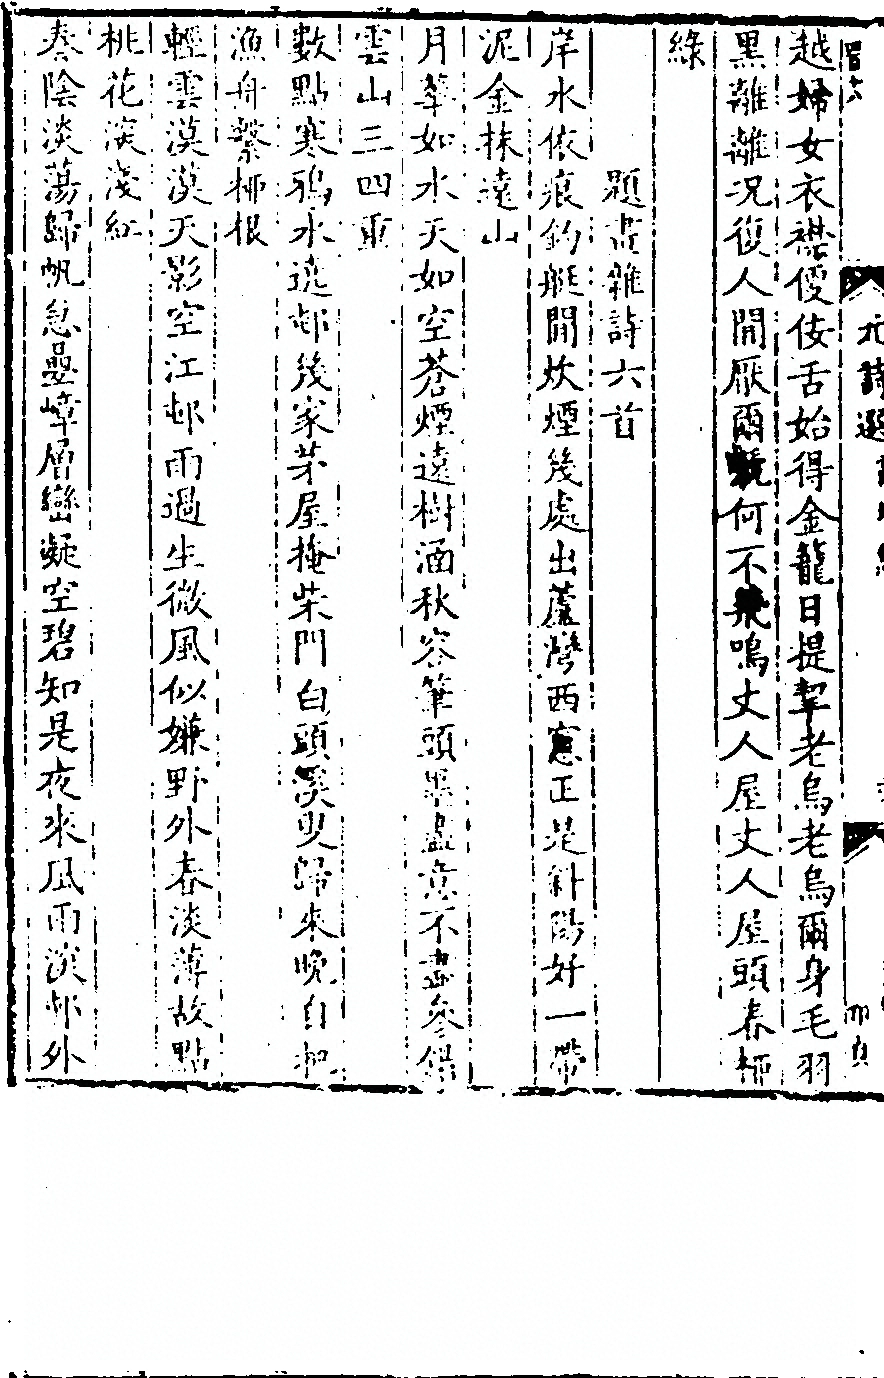 元詩選
越婦女衣襟儍侫舌始得金籠日提挈老烏老烏爾身毛羽
黑離離況復人間厭爾 何不 鳴丈人屋丈人屋頭春柳
綠
題畫雜詩六首
岸水依痕釣艇閒炊煙幾處出蘆灣西窻正是斜陽好一帶
泥金抹遠山
月華如水天如空蒼煙遠樹涵秋容筆頭墨盡意不盡參錯
雲山三四重
數點寒鴉水遶邨幾家茅屋掩柴門白頭溪叟歸來晚自把
漁舟繫柳根
輕雲漠漠天影空江邨雨過生微風似嫌野外春淡薄故點
桃花深淺紅
春陰淡蕩歸帆急疊嶂層巒凝空碧知是夜來風雨深邨外